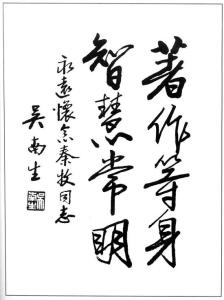 著作等身
智慧常明
永遠懷念秦牧同志
吴南生